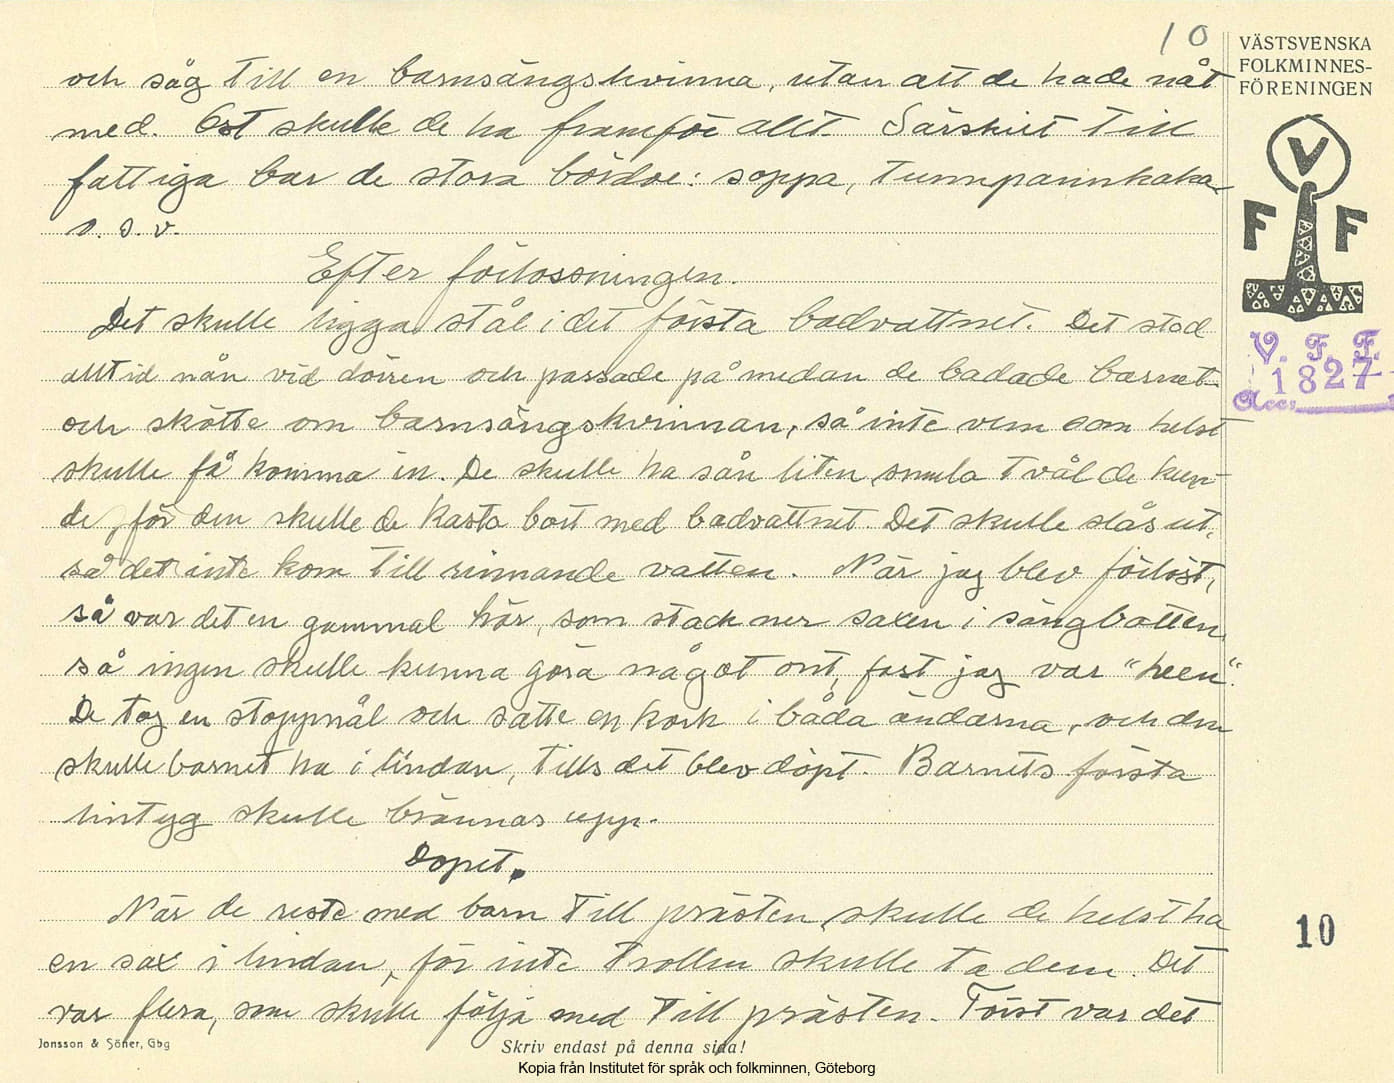 10
VÄSTSVENSKA
FOLKMINNES-
FÖRENINGEN
och såg till en barnsängskvinna, utan att de hade nåt
med. Ost skulle de ha framför allt. Särskilt till
fattiga bar de stora bördor: soppa, tunnpannkaka
o. s. v.
Efter förlossningen.
Det skulle ligga stål i det första badvattnet. Det stod
alltid nån vid dörren och passade på medan de badade barnet
och skötte om barnsängskvinnan, så inte vem som helst
skulle få komma in. De skulle ha sån liten smula tvål de kun-
de, för den skulle de kasta bort med badvattnet. Det skulle slås ut,
så det inte kom till rinnande vatten. När jag blev förlöst,
så var det en gammal här, som stack ner saxen i sängbotten,
så ingen skulle kunna göra något ont, fast jag var "heen".
De tog en stoppnål och satte en kork i båda ändarna, och den
skulle barnet ha i lindan, tills det blev döpt. Barnets första
lintyg skulle brännas upp.
Dopet.
När de reste med barn till prästen, skulle de helst ha
en sax i lindan, för inte trollen skulle ta dem. Det
var flera, som skulle följa med till prästen. Först var det
V
F F
V. F. F.
1827
Acc:
10
Jonsson & Söner, Gbg
Skriv endast på denna sida!
Kopia från Institutet för språk och folkminnen, Göteborg